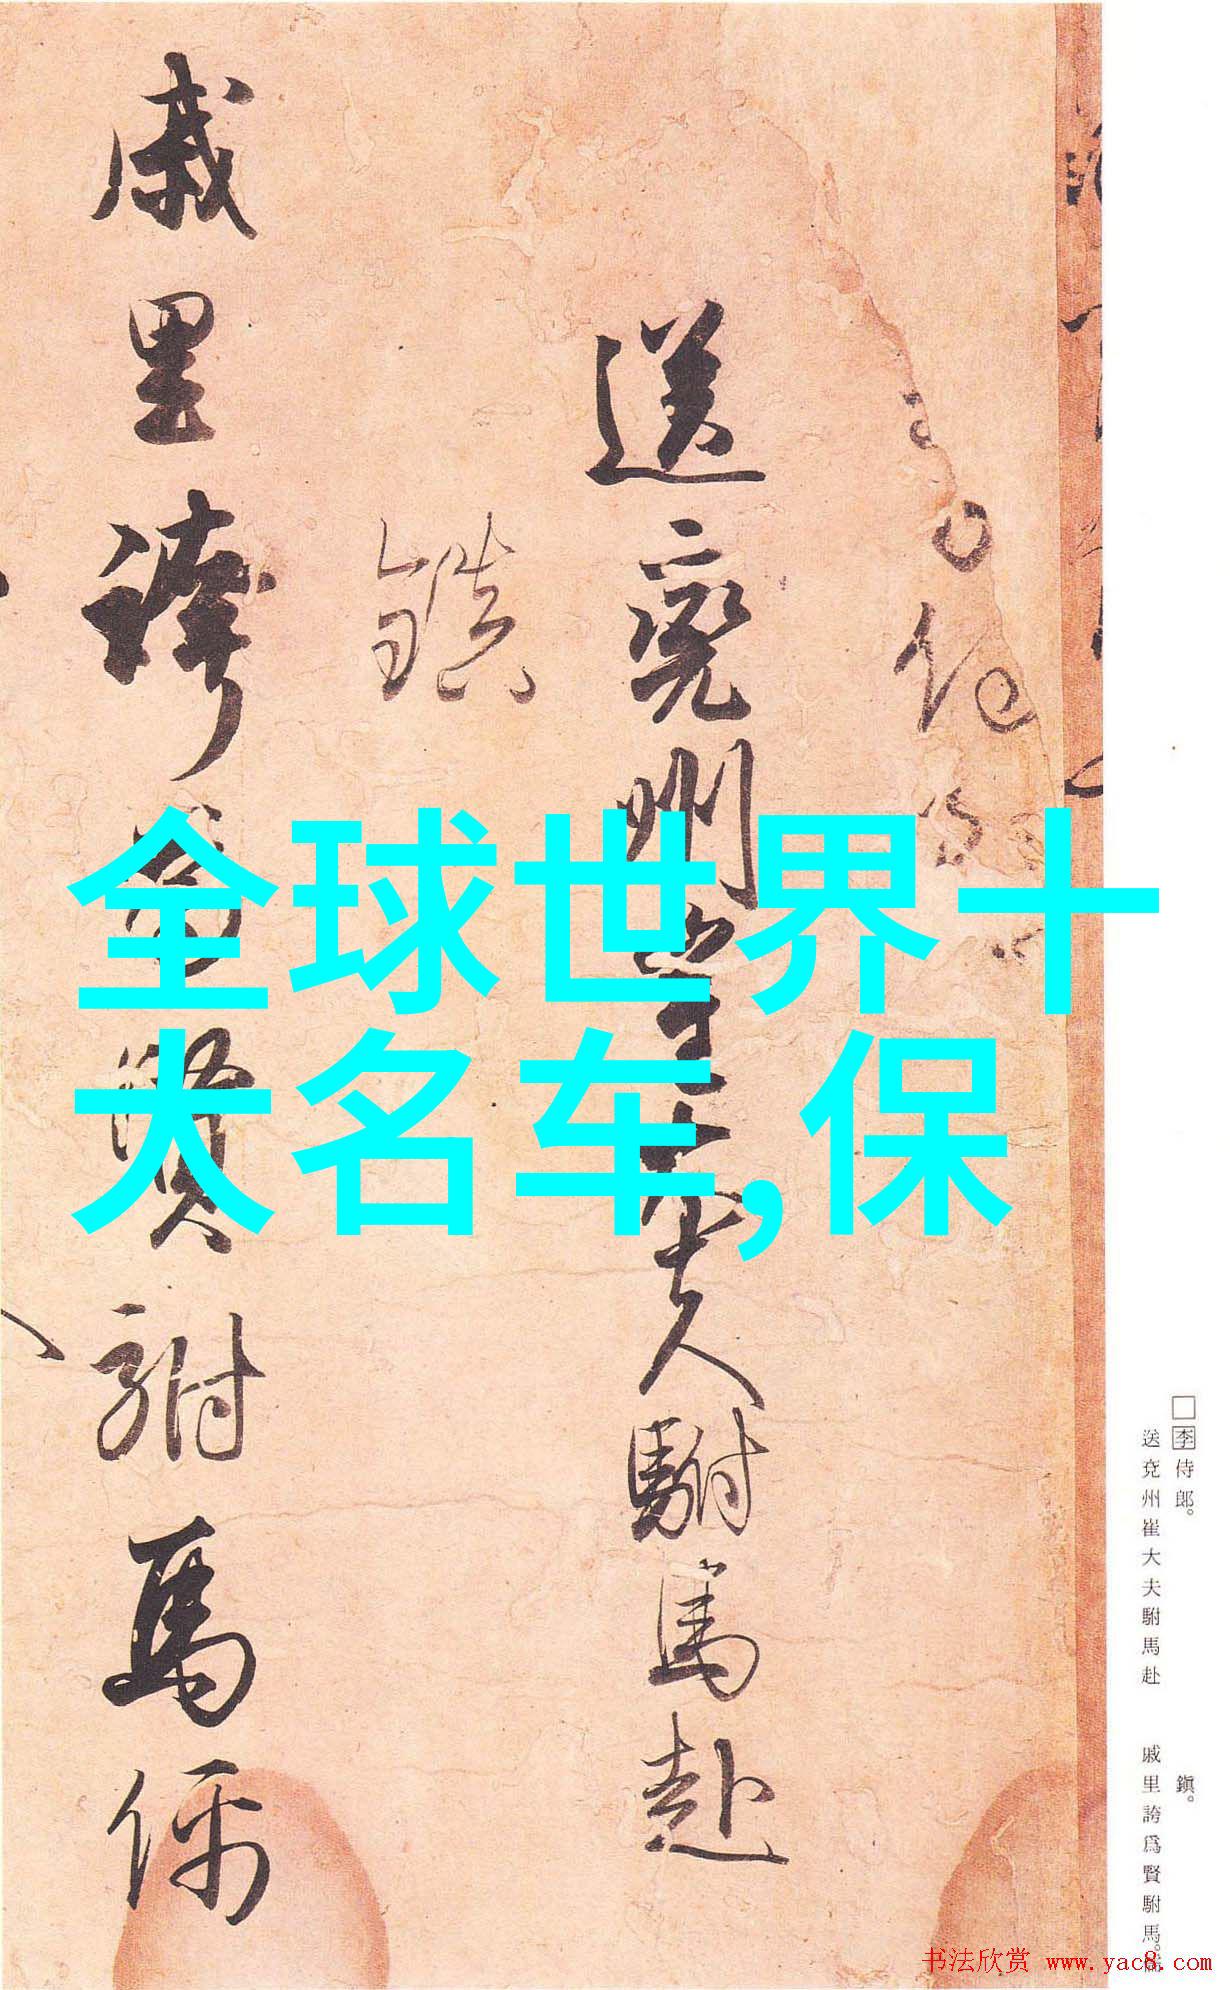 全球世界十
大名车,保
送兗州崔大夫駙馬赴
鎮
戚里誇為賢駙馬儒
□李侍郎。
鎮。
送兗州崔大夫駙馬赴
戚里誇爲賢駙馬。
书法欣赏 www.yac8.com